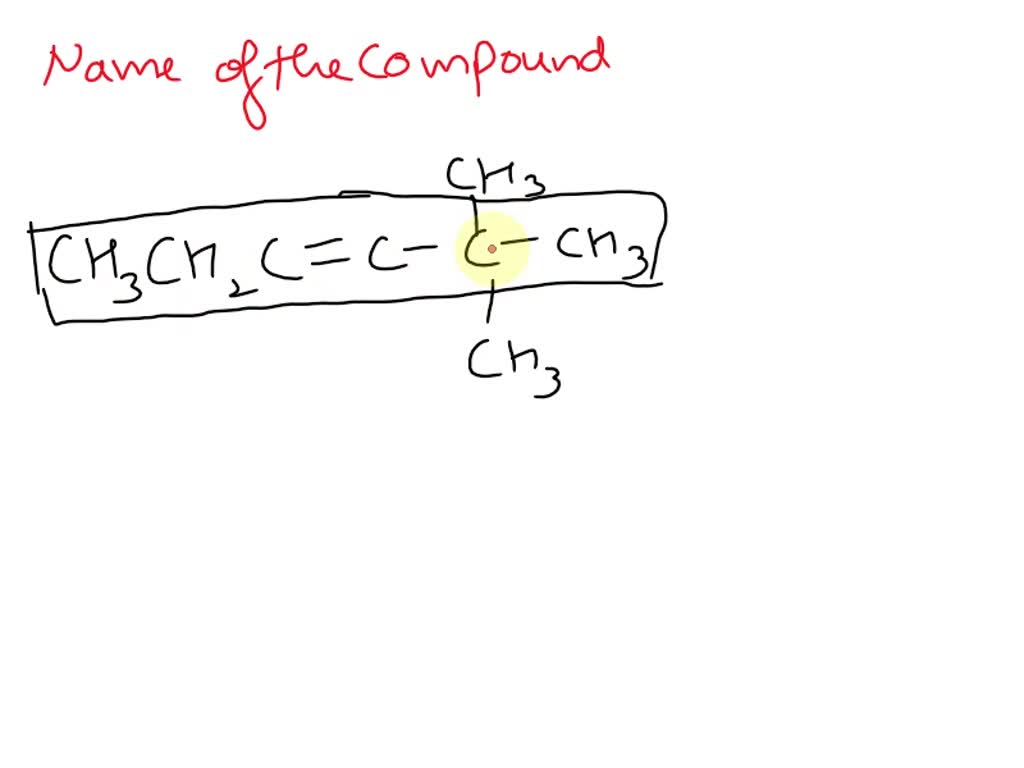 Name of the Compound
CH3
CH3CH2C=C-C-CH3
CH3